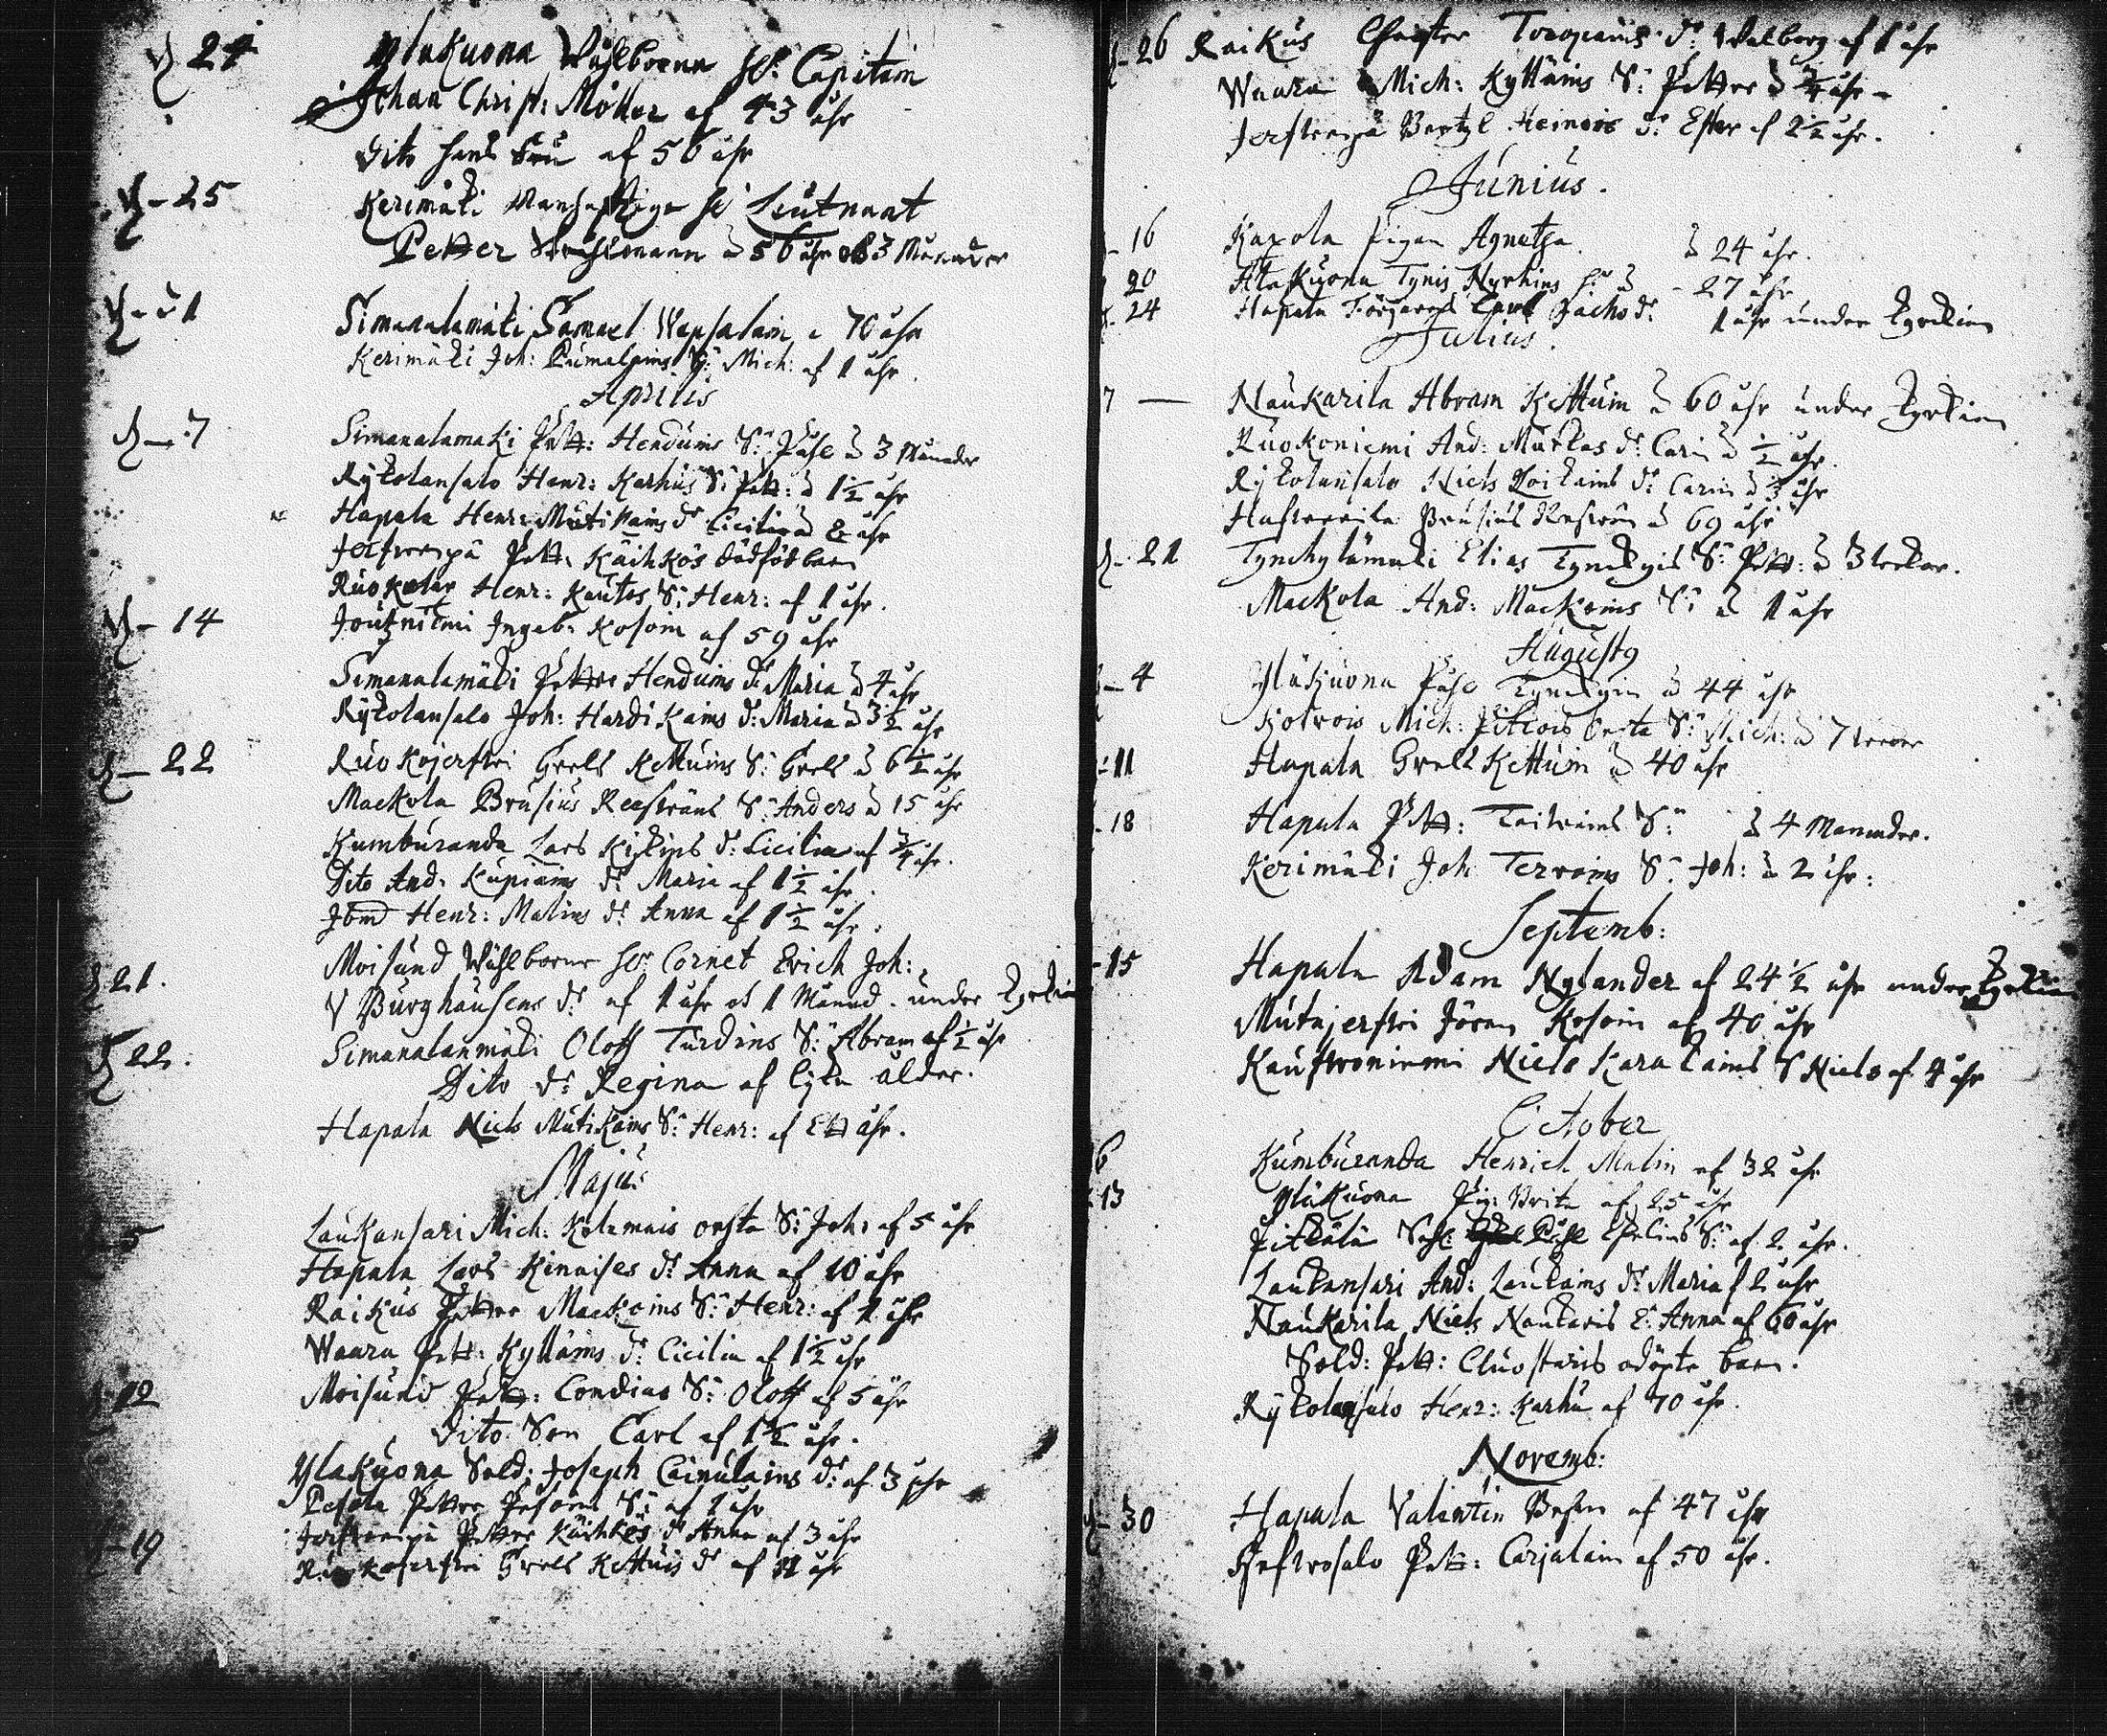 24 Ylakuona Wählborne Hr Capitain
Johan Christ: Möller af 43 åhr
Dito hans fru af 56 åhr
25 Kerimäki Manhaftige Hr Leutnant
Petter Strahlmann a 56 åhr ok 3 Månader
31 Simanalamäki Samuel Wepsalain a 70 åhr
Kerimäki Joh: Pumalains S: Mich: af 1 åhr
Aprilis
7 Simanalamäki Pett: Henduins S: Påhl a 3 Månader
Rykolansalo Henr: Karhus S: Pett: a 1½ åhr
Hapala Henr: Mutikains dr Cicilia a 2 åhr
Pett: Käihkös dödfödt barn
Henr: Kautos S: Henr: af 1 åhr.
14 Joutzniemi Ingeb: Kosoin af 59 åhr
Simanalamäki Petter Henduins dr Maria a 4 åhr
Rykolansalo Joh: Hardikains dr: Maria a 3½ åhr
22 Ruokojerfwi Grels Kettuins S: Grels a 6½ åhr
Mackola Brusius Reesträns S: Anders a 15 åhr
Kumburanda Lars Kikins dr: Cicilia af ¾ åhr.
Dito And: Kupiains dr Maria af 1½ åhr.
Ibm Henr: Malins dr Anna af 1½ åhr.
21. Moisund Wählborne Hr Cornet Erich Joh:
V Burghausens dr af 1 åhr ok 1 Månad. under Kyrkian
22. Simanalanmäki Oloff Turdins S: Abram af ½ åhr
Dito dr Regina af lyka ålder.
Hapala Niels Mutikains S: Henr: af Ett åhr.
Majus
5 Laukansari Mich: Kolemais oechta S: Joh: af 5 åhr
Hapala Lars Kinaises dr Anna af 10 åhr
Raikus Petter Mackoins S: Henr: af 1 åhr
Waara Pett: Kyllains dr: Cicilia af 1½ åhr
12 Moisund Pett: Condias S: Oloff af 5 åhr
Dito Son Carl af 1½ åhr.
Ylakuona Sold: Joseph Cainulains dr af 3 åhr
Pesola Petter Pesoins S: af 1 åhr
19 Petter Käihkös dr Anna af 3 åhr
Grels Kettuis dr af 11 åhr
26 Raikus Christer Toropains dr: Walborg af 1 åhr
Waara Mich: Kyllains S: Petter a ¾ åhr
Bertel Heinois dr: Ester af 2½ åhr.
Junius.
16 Karola pigan Agneta a 24 åhr.
20 Alakuona Tynis Nyrhins hu a 27 åhr
24 Hapala Carl dr. 1 åhr under Kyrkian
Julius.
7 Naukarila Abram Kettuin a 60 åhr under Kyrkian
Ruokoniemi And: Murtas dr: Carin a ½ åhr.
Rykolansalo Niels Loikains dr Carin a 3 åhr
Brusius a 69 åhr
21 Elias S: Pett: a 3 wekor.
Mackola And: Mackoins S: a 1 åhr
Augusty
4 Yläkuona Påhl a 44 åhr
Mich: oechta S: Mich: a 7
11 Hapala Grels Kettuin a 40 åhr
18 Hapala Pett: S: a 4 Manader.
Kerimäki Joh: Tervoins S: Joh: a 2 åhr.
Septemb:
15 Hapala Adam Nylander af 24½ åhr under Kyrkian
Mutajerfwi Jören Kosoin af 40 åhr
Niels Karakains S Niels af 4 åhr
October
6 Kumburanda Henrich Malin af 32 åhr
13 Yläkuona Pig: Brita af 25 åhr
Pitkälä S: af 2 åhr.
Laukansari And: Laukains dr: Maria af 2 åhr
Naukarila Niels Naukaris E: Anna af 60 åhr
Sold: Pett: odöpte barn.
Rykolansalo Henr: Karhu af 70 åhr.
Novemb:
30 Hapala Valentin af 47 åhr
Pett: Carjalain af 50 åhr.